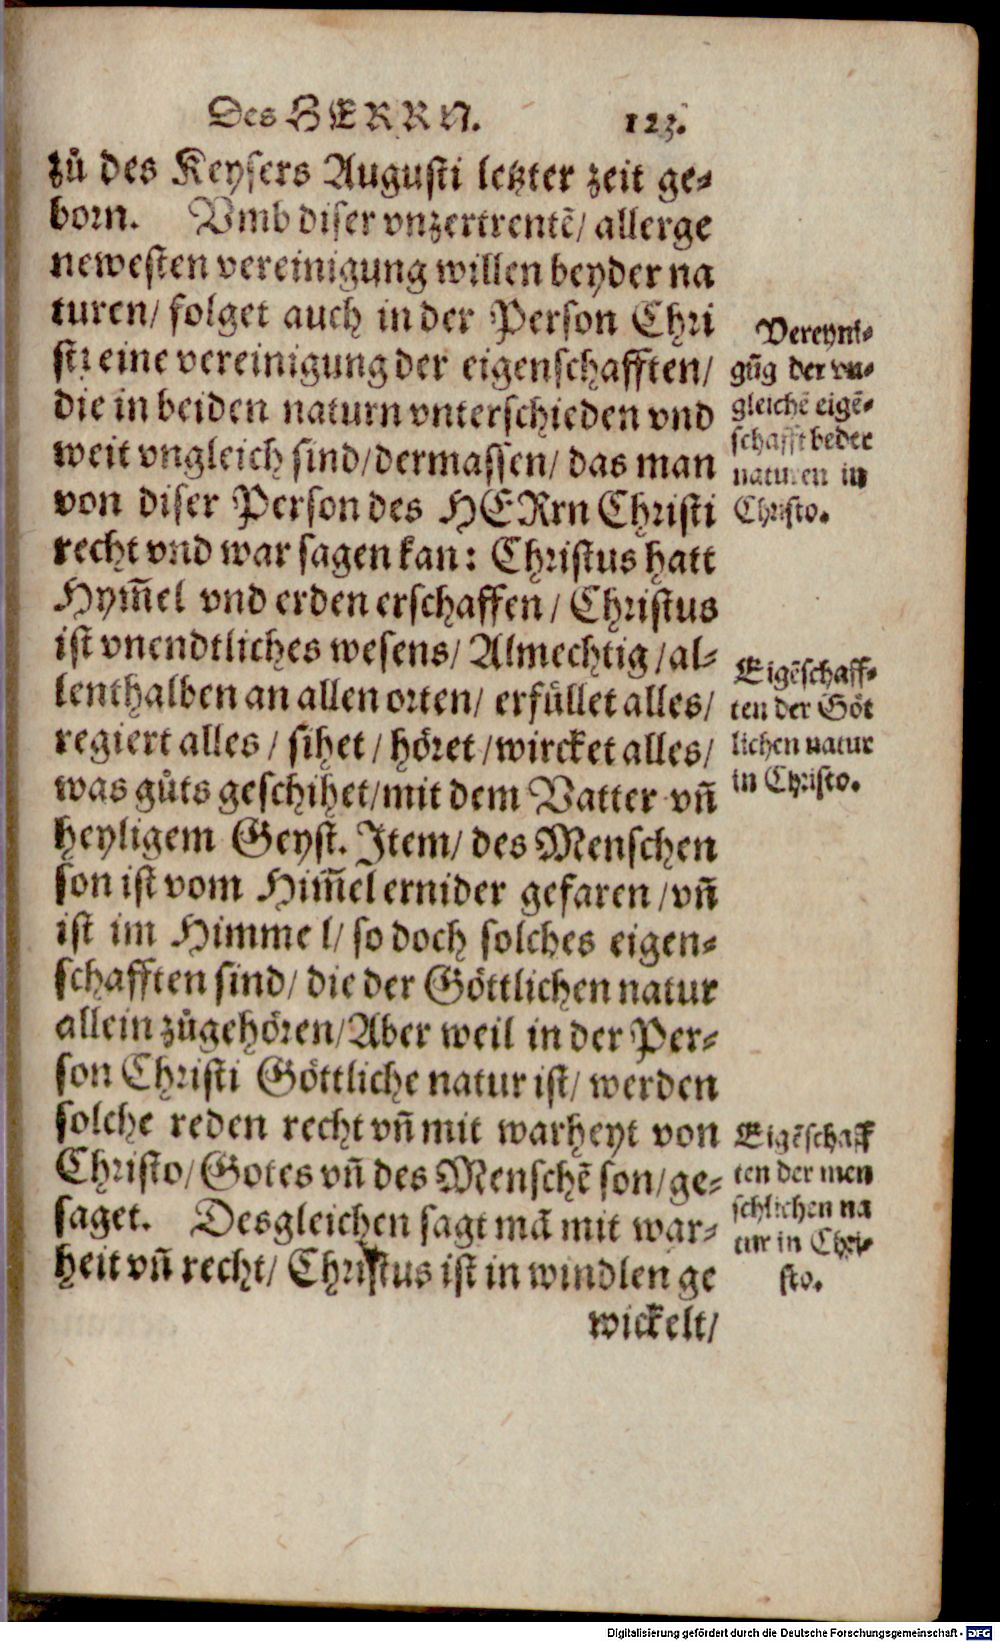 Des HERRN. 123.
zů des Keysers Augusti letzter zeit ge-
born. Vmb diser vnzertrentẽ/ allerge
newesten vereinigung willen beyder na
turen/ folget auch in der Person Chri
sti eine vereinigung der eigenschafften/
die in beiden naturn vnterschieden vnd
weit vngleich sind/dermassen/ das man
von diser Person des HERrn Christi
recht vnd war sagen kan: Christus hatt
Hym̃el vnd erden erschaffen/ Christus
ist vnendtliches wesens/ Almechtig/al-
lenthalben an allen orten/ erfüllet alles/
regiert alles/ sihet/ höret/wircket alles/
was gůts geschihet/mit dem Vatter vñ
heyligem Geyst. Item/ des Menschen
son ist vom Him̃el ernider gefaren/vñ
ist im Himmel/ so doch solches eigen-
schafften sind/ die der Göttlichen natur
allein zůgehören/Aber weil in der Per-
son Christi Göttliche natur ist/ werden
solche reden recht vñ mit warheyt von
Christo/Gotes vñ des Menschẽ son/ge-
saget. Desgleichen sagt mã mit war-
heit vñ recht/ Christus ist in windlen ge
wickelt/
Vereyni-
gũg der vn-
gleichẽ eigẽ-
schafft beder
naturen in
Christo.
Eigẽschaff-
ten der Göt
lichen natur
in Christo.
Eigẽschaff
ten der men
schlichen na
tur in Chri-
sto.
Digitalisierung gefördert durch die Deutsche Forschungsgemeinschaft - DFG